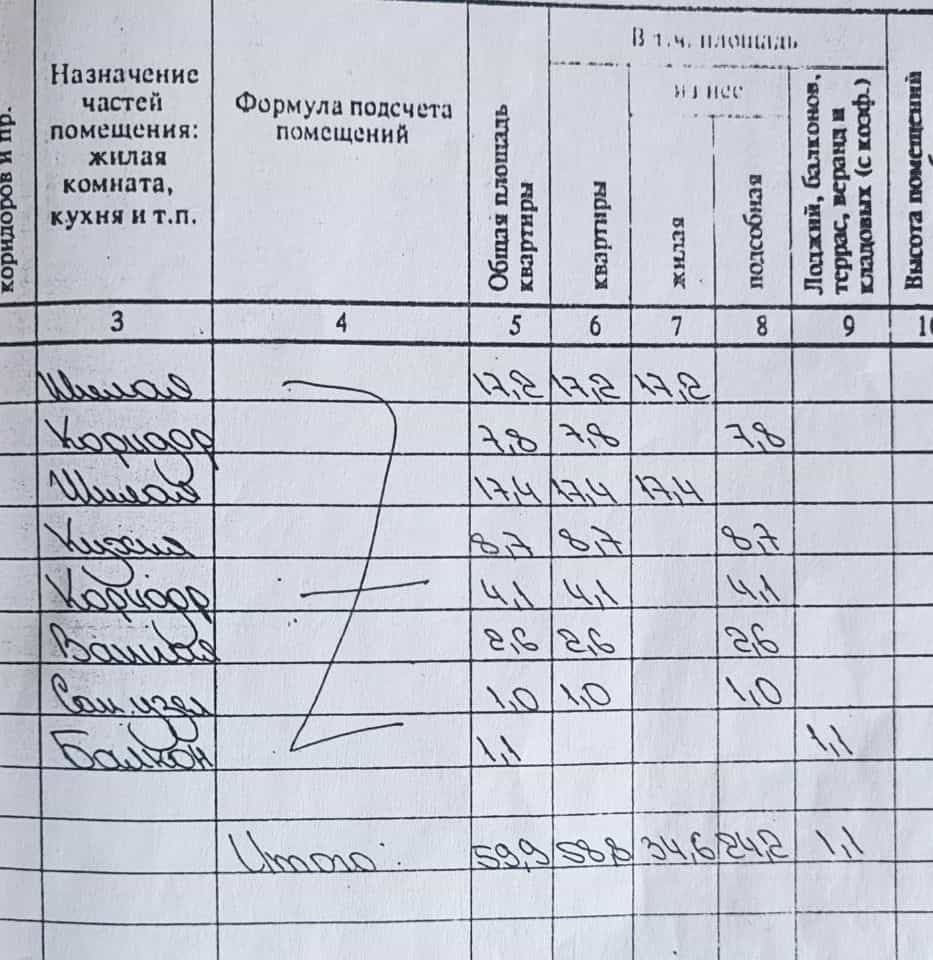 коридоров и пр.
Назначение
частей
помещения:
жилая
комната,
кухня и т.п.
Формула подсчета
помещений
Общая площадь
квартиры
В т.ч. площадь
квартиры
из нее
жилая
подсобная
Лоджий, балконов,
террас, веранд и
кладовых (с коэф.)
Высота помещений
3 4 5 6 7 8 9 10
Жилая 17,2 17,2 17,2
Коридор 7,8 7,8 7,8
Жилая 17,4 17,4 17,4
Кухня 8,7 8,7 8,7
Коридор 4,1 4,1 4,1
Ванная 2,6 2,6 2,6
Сан. узел 1,0 1,0 1,0
Балкон 1,1 1,1
Итого: 59,9 58,8 34,6 24,2 1,1